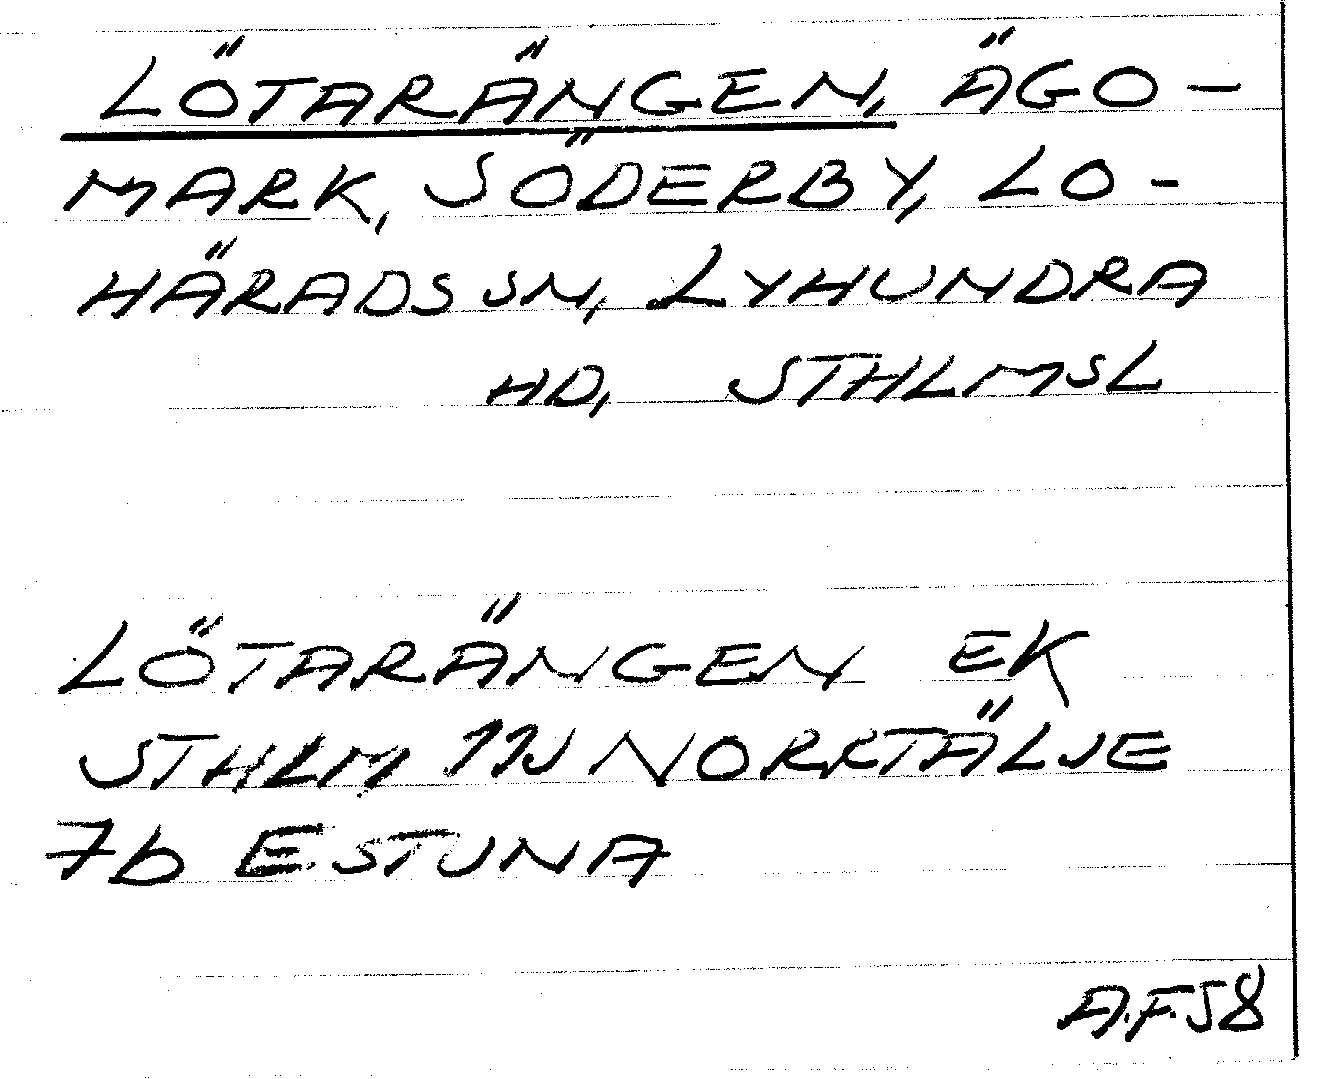 LÖTARÄNGEN, ÄGO-
MARK, SÖDERBY, LO-
HÄRADS SN, LYHUNDRA
HD, STHLMSL
LÖTARÄNGEN EK
STHLM 11J NORRTÄLJE
7b ESTUNA
A.F.58